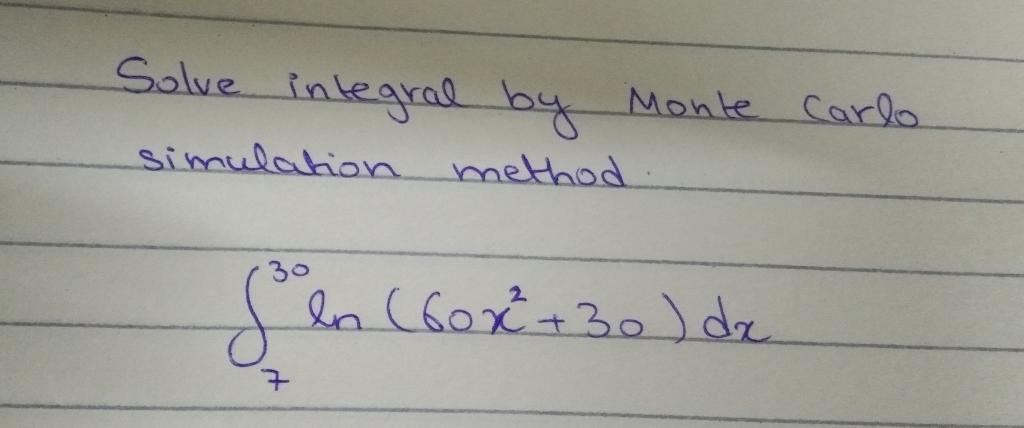 Solve integral by Monte Carlo
simulation method.
∫₇³⁰ ln (60x²+30) dx